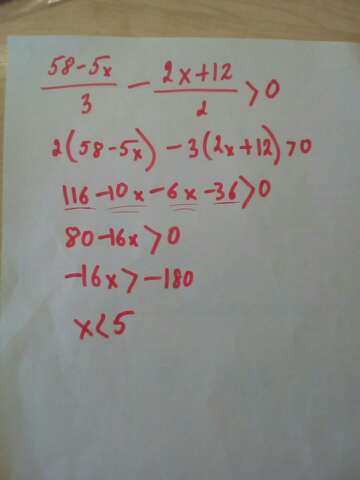 58-5x/3 - 2x+12/2 >0
2(58-5x) -3(2x+12)>0
116-10x-6x-36>0
80-16x>0
-16x>-180
x<5